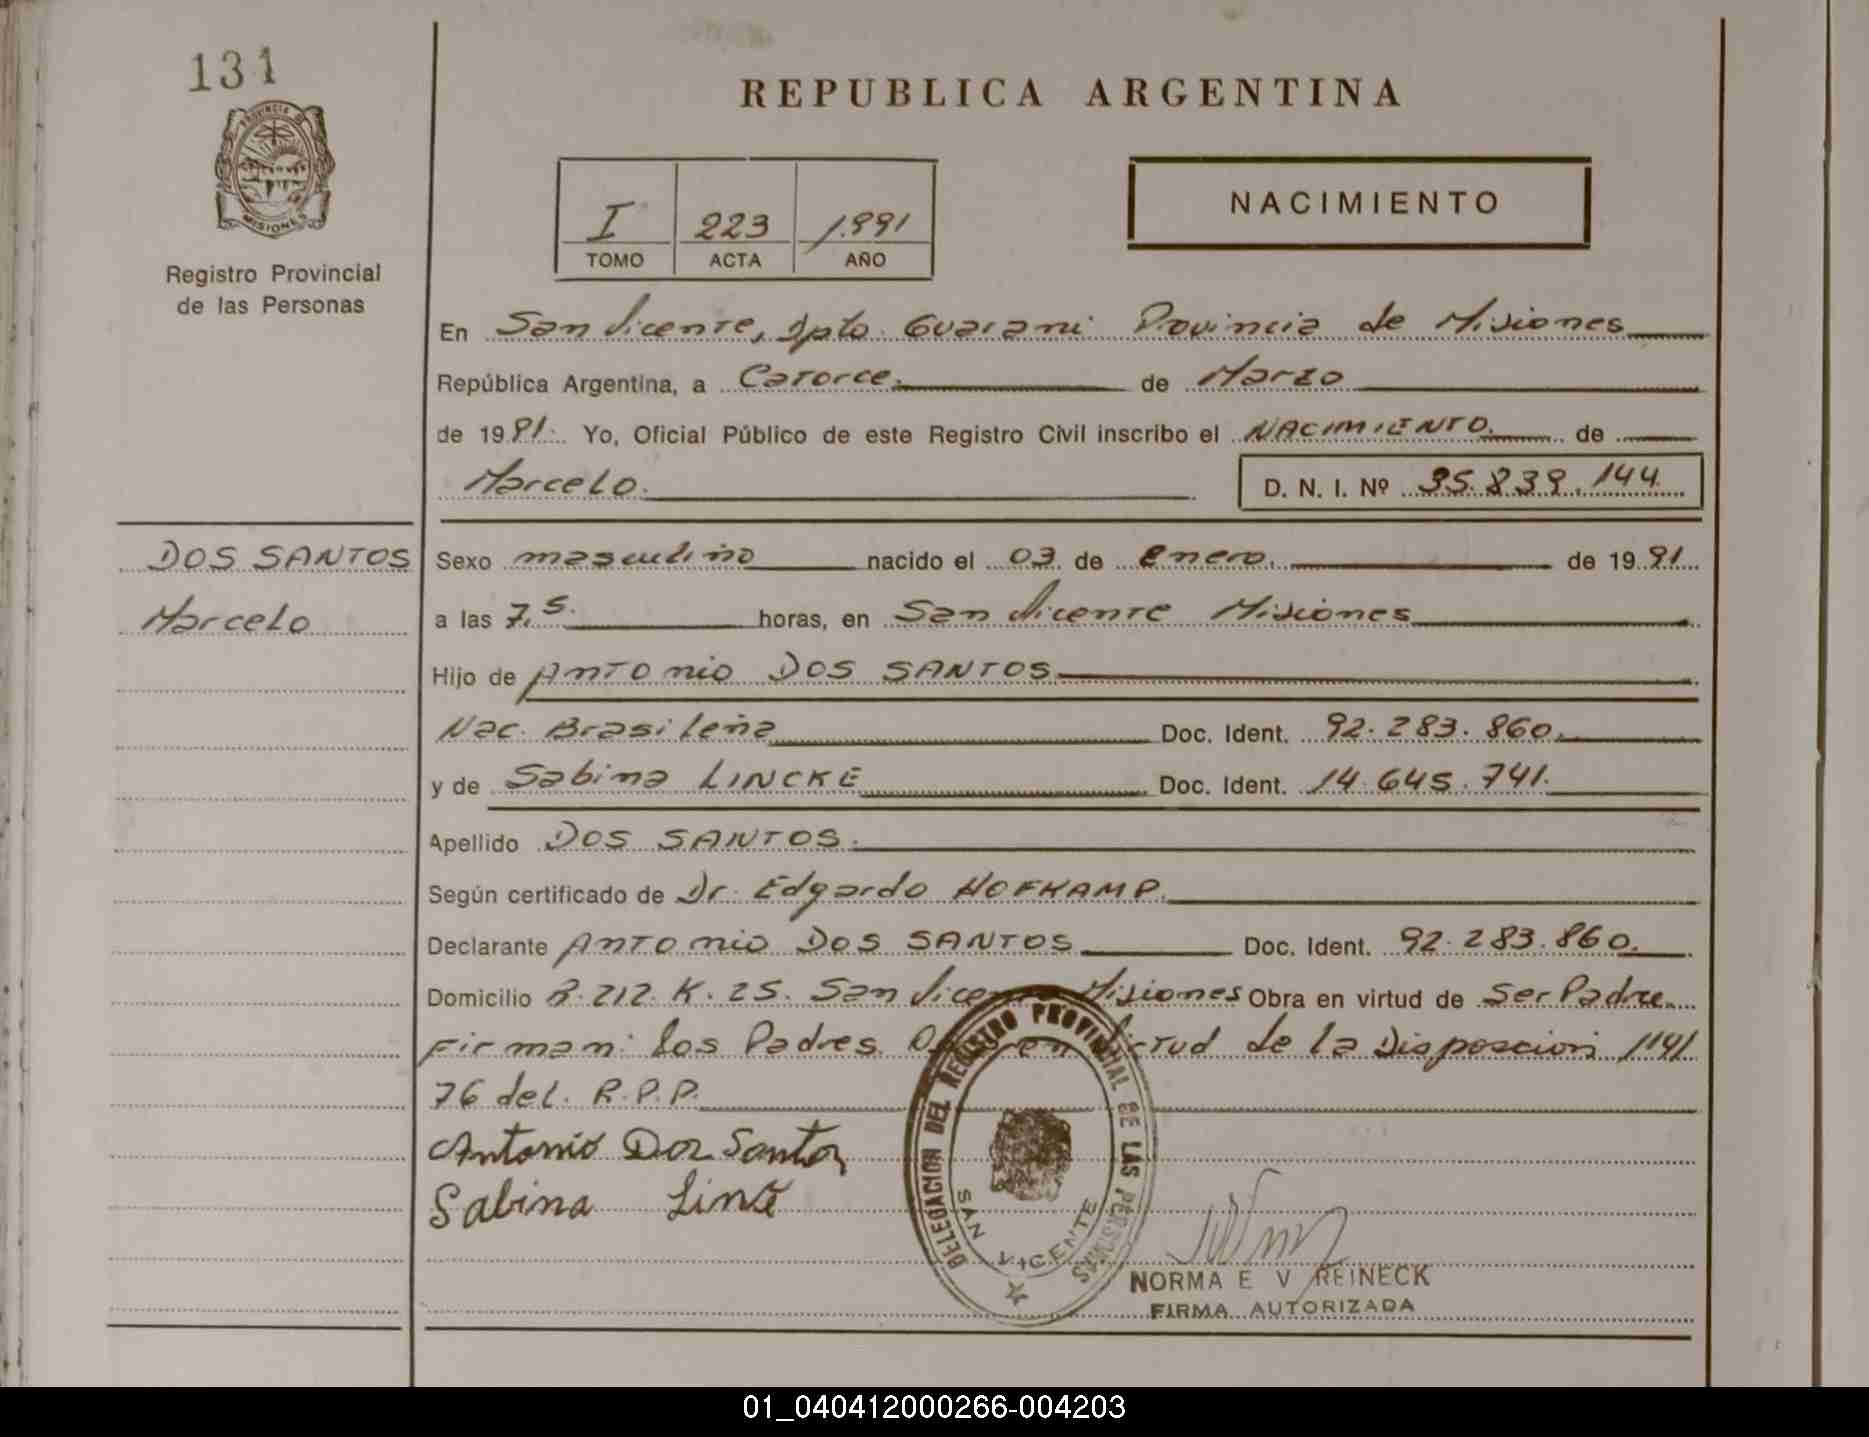 131
REPUBLICA ARGENTINA
PROVINCIA DE
MISIONES
Registro Provincial
de las Personas
I 223 1.991
TOMO ACTA AÑO
NACIMIENTO
En San Vicente, Dpto. Guarani Provincia de Misiones
República Argentina, a Catorce. de Marzo
de 1991. Yo, Oficial Público de este Registro Civil inscribo el NACIMIENTO. de
Marcelo. D. N. I. Nº 35.839.144
DOS SANTOS
Marcelo
Sexo masculino nacido el 03 de enero. de 1991
a las 7,5. horas, en San Vicente Misiones
Hijo de ANTONIO DOS SANTOS
Nac. Brasileña Doc. Ident. 92.283.860.
y de Sabina LINCKE Doc. Ident. 14.645.741.
Apellido DOS SANTOS.
Según certificado de Dr. Edgardo HOFKAMP.
Declarante ANTONIO DOS SANTOS Doc. Ident. 92.283.860.
Domicilio R.212. K.25. San Vicente Misiones Obra en virtud de Ser Padre.
Firman: los Padres en virtud de la Disposcion 1141
76 del. R.P.P.
Antonio Dos Santos
Sabina
DELEGACION DEL REGISTRO PROVINCIAL DE LAS PERSONAS
SAN VICENTE
NORMA E V REINECK
FIRMA AUTORIZADA
01_040412000266-004203